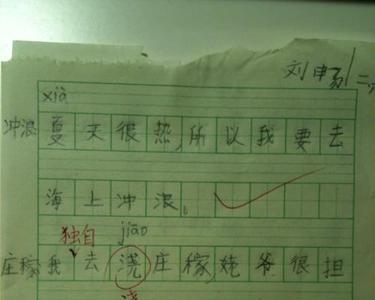 刘申易 二
xià
冲浪 夏天很热,所以我要去
海上冲浪。
独自 jiāo
庄稼 我去浇庄稼,姥爷很担
浇